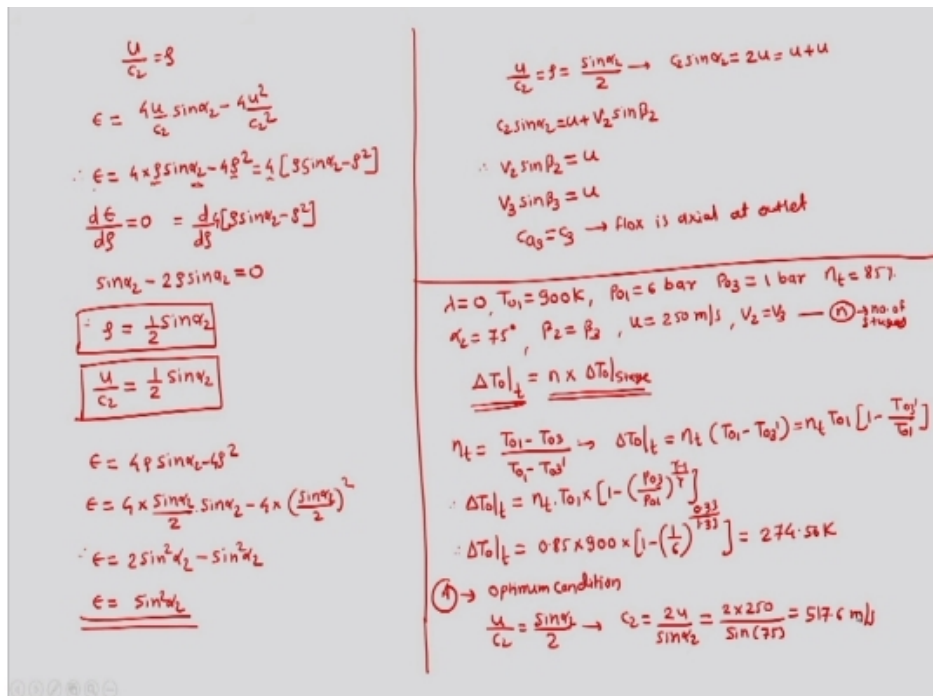 u/c₂ = ρ
ε = 4u/c₂ sinα₂ - 4u²/c₂²
∴ ε = 4×ρsinα₂-4ρ² = 4[ρsinα₂-ρ²]
dε/dρ = 0 = d/dρ 4[ρsinα₂-ρ²]
sinα₂ - 2ρsinα₂ = 0
∴ ρ = 1/2 sinα₂
u/c₂ = 1/2 sinα₂
ε = 4ρsinα₂-4ρ²
ε = 4× sinα₂/2 · sinα₂ - 4×(sinα₂/2)²
∴ ε = 2sin²α₂ - sin²α₂
ε = sin²α₂
u/c₂ = ρ = sinα₂/2 → c₂sinα₂ = 2u = u+u
c₂sinα₂ = u+V₂sinβ₂
∴ V₂sinβ₂ = u
V₃sinβ₃ = u
ca₃ = c₃ → flox is axial at outlet
λ=0, T₀₁=900K, P₀₁=6 bar P₀₃=1 bar ηt=85%
α₂=75°, β₂=β₃, u=250 m/s, V₂=V₃ — n → no. of stages
ΔT₀|t = n× ΔT₀|stage
ηt = T₀₁-T₀₃/T₀₁-T₀₃' → ΔT₀|t = ηt (T₀₁-T₀₃') = ηt T₀₁ [1- T₀₃'/T₀₁]
∴ ΔT₀|t = ηt.T₀₁×[1-(P₀₃/P₀₁)^(γ-1/γ)]
∴ ΔT₀|t = 0.85×900×[1-(1/6)^(0.33/1.33)] = 274.56K
1 → optimum condition
u/c₂ = sinα₂/2 → c₂ = 2u/sinα₂ = 2×250/sin(75) = 517.6 m/s